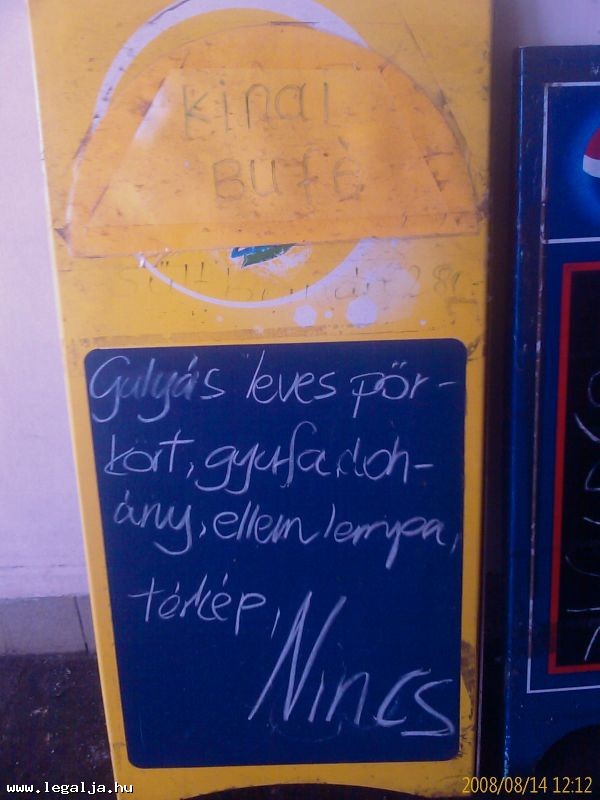 Kinai
Bufè
Gulyás leves pör-
költ, gyufa, doh-
ány, ellem lempa,
térkép,
Nincs
www.legalja.hu
2008/08/14 12:12